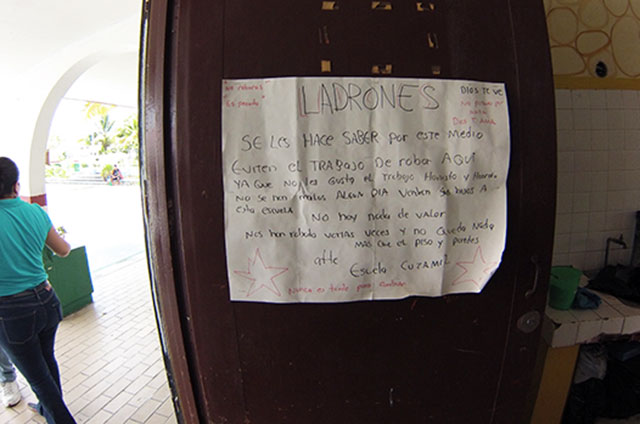 No robaras
Es pecado
LADRONES
DIOS TE VE
No
Dios T AMA
SE LES HACE SABER por este Medio
Eviten el TRABAJO De robar AQUÍ
YA Que No les Gusta el trabajo Honesto y Honrado
No se han malos ALGun DIA Vendran Sus hijos A
esta escuela. No hay nada de valor
Nos han robado varias veces y no Quedo Nada
Mas que el piso y paredes
atte
Escuela CUZAMIL
Nunca es tarde para cambiar